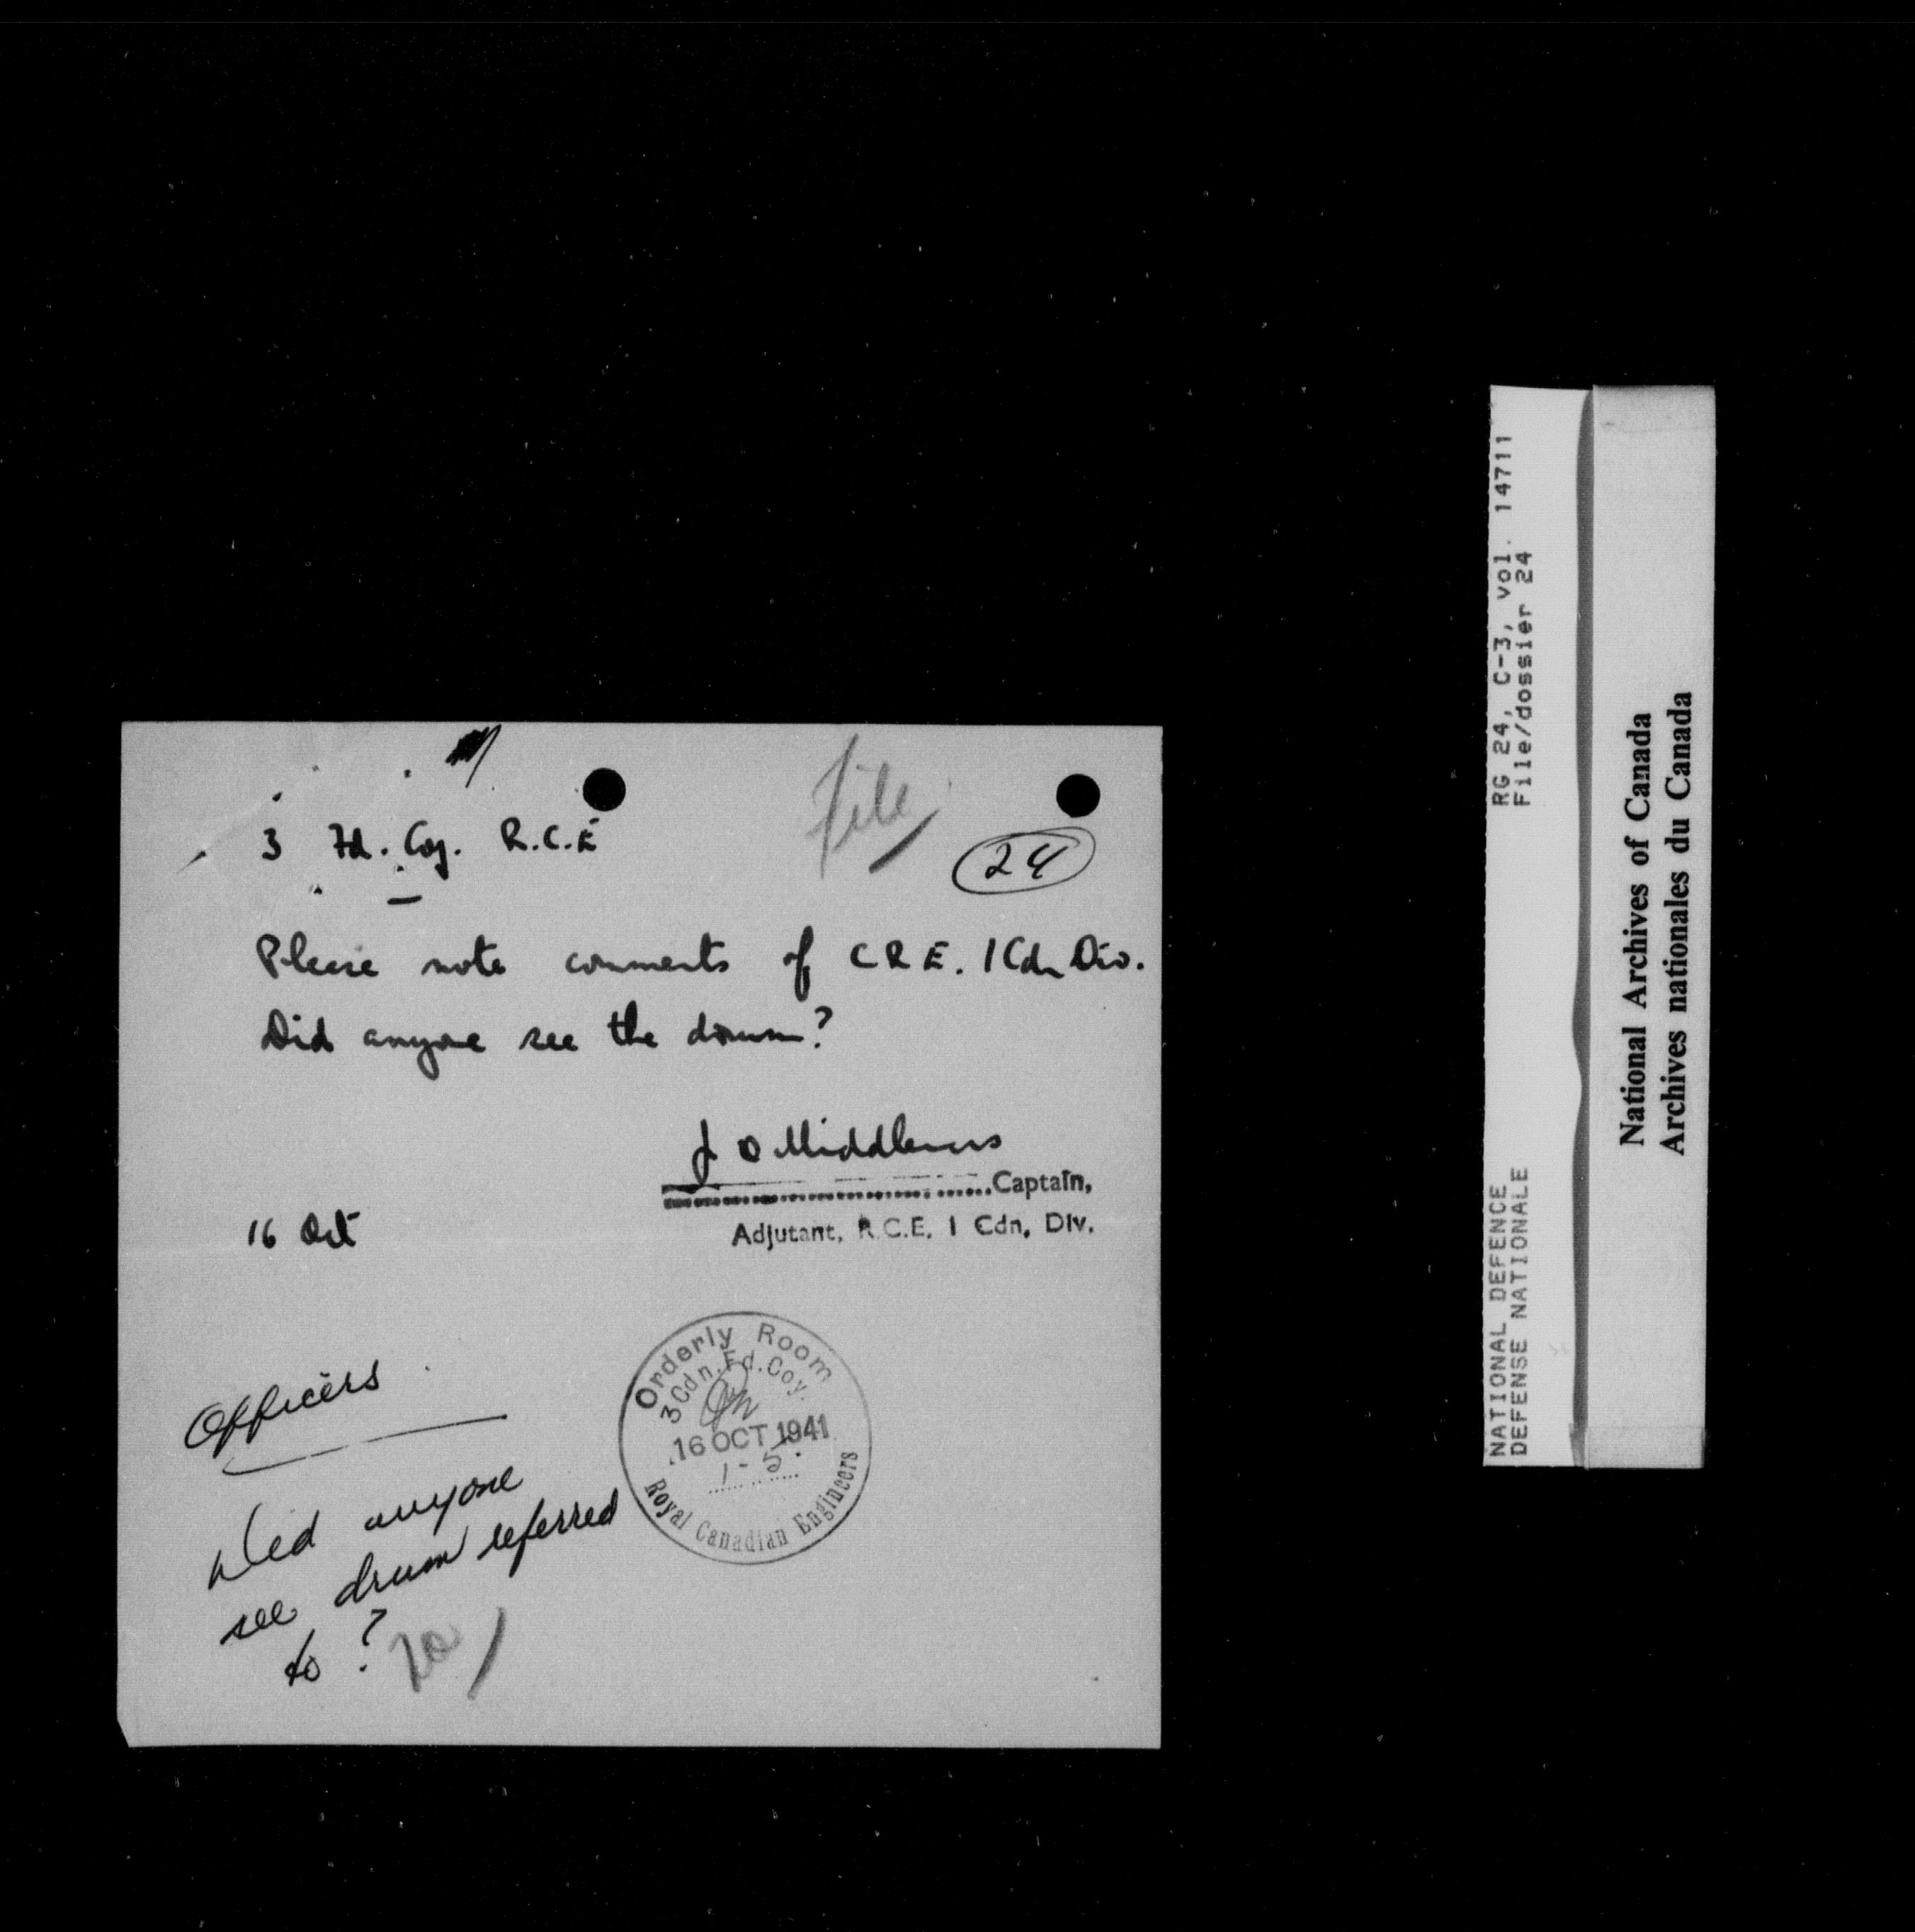 File
3 Fd. Coy. R.C.E
24
Please note comments of C R E. 1 Cdn Div.
Did anyone see the drum?
J O Middlemas
Captain,
16 Oct
Adjutant, R.C.E. 1 Cdn, Div.
Orderly Room
3 Cdn. Fd. Coy.
16 OCT 1941
1-5
Royal Canadian Engineers
Officers
Did anyone
see drum referred
to ?
RG 24, C-3, vol. 14711
File/dossier 24
NATIONAL DEFENCE
DEFENSE NATIONALE
National Archives of Canada
Archives nationales du Canada